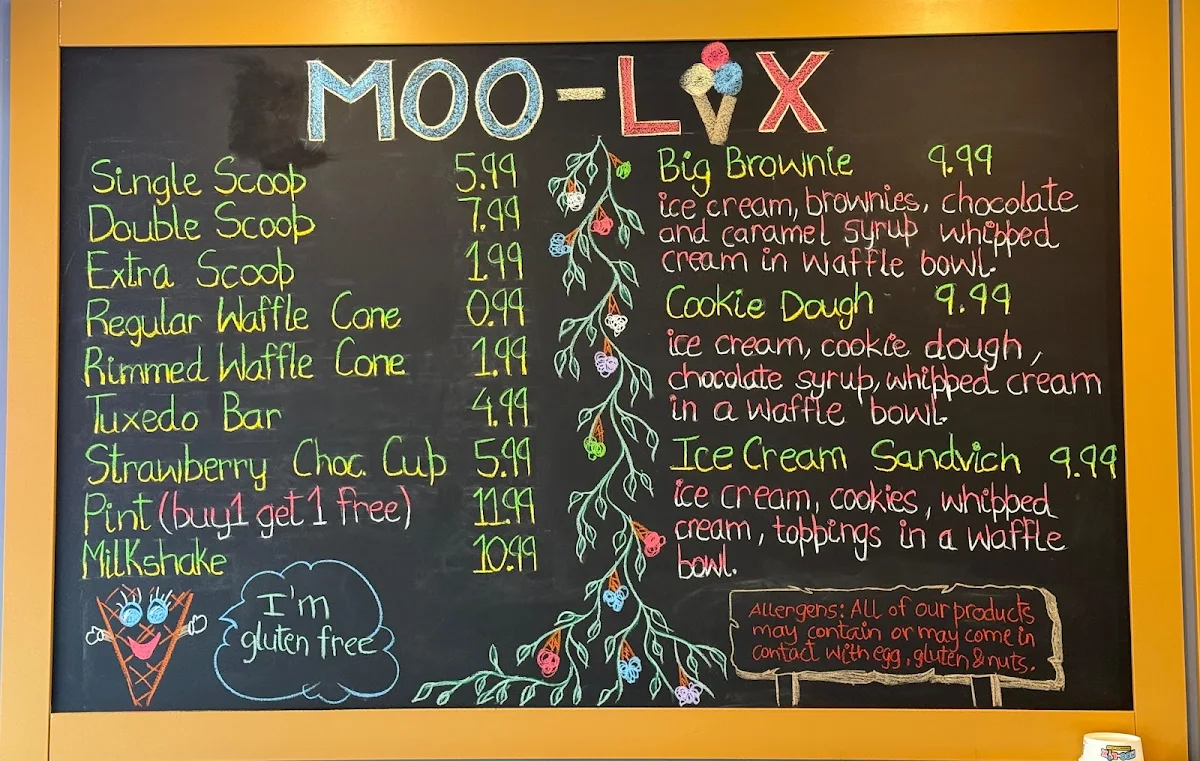 MOO-LIX
Single Scoop 5.99
Double Scoop 7.99
Extra Scoop 1.99
Regular Waffle Cone 0.99
Rimmed Waffle Cone 1.99
Tuxedo Bar 4.99
Strawberry Choc. Cup 5.99
Pint (buy1 get 1 free) 11.99
Milkshake 10.99
I'm
gluten free
Big Brownie 9.99
ice cream, brownies, chocolate
and caramel syrup whipped
cream in waffle bowl.
Cookie Dough 9.99
ice cream, cookie dough,
chocolate syrup, whipped cream
in a waffle bowl.
Ice Cream Sandvich 9.99
ice cream, cookies, whipped
cream, toppings in a waffle
bowl.
Allergens: All of our products
may contain or may come in
contact with egg, gluten & nuts.